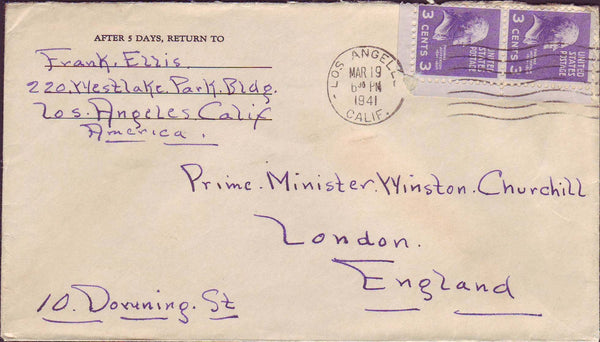 AFTER 5 DAYS, RETURN TO
Frank. Ellis.
220. Westlake. Park. Bldg.
Los. Angeles. Calif
America.
LOS ANGELES
MAR 19
6 PM
1941
CALIF.
3 CENTS 3
UNITED STATES POSTAGE
3 CENTS 3
UNITED STATES POSTAGE
Prime. Minister. Winston. Churchill
London.
England
10. Doruning. St